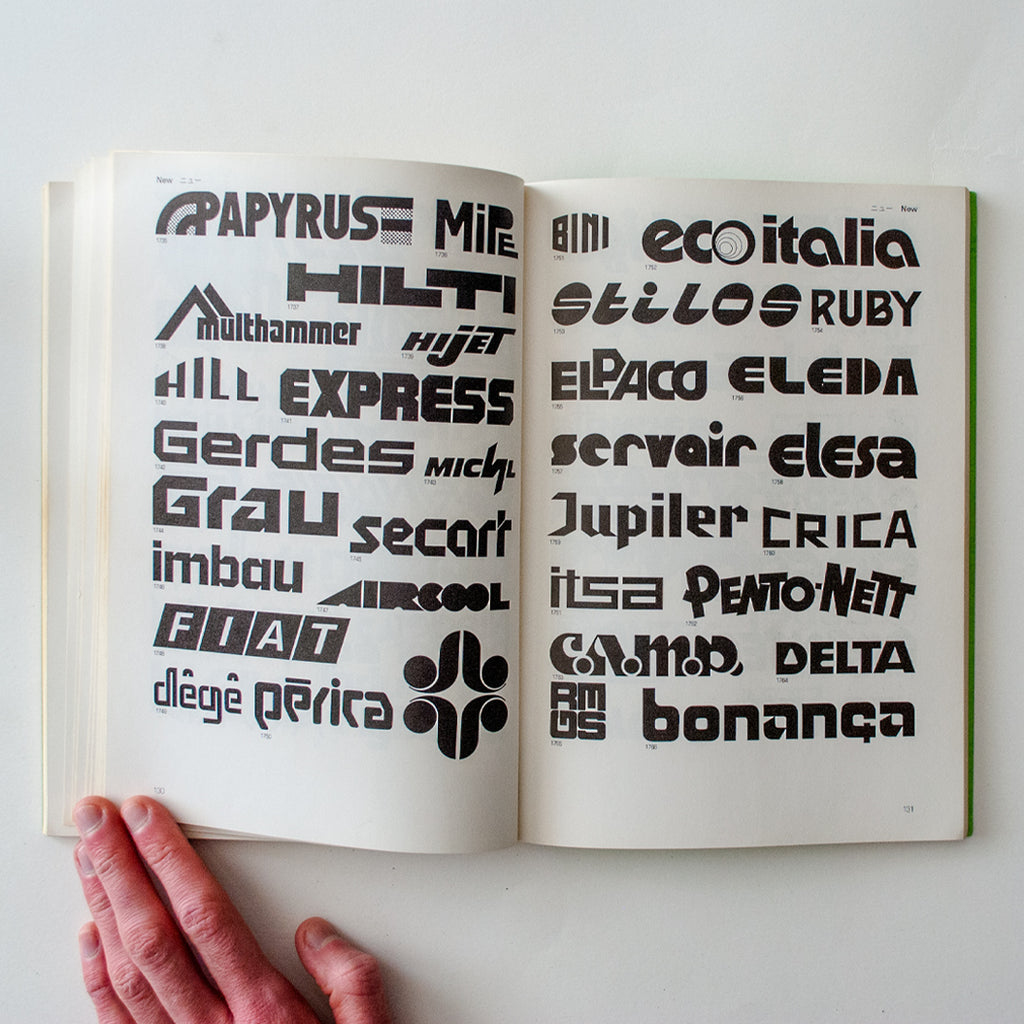 New ニュー
PAPYRUS MiPE
1735 1736
HILTI
1737
multhammer HIJET
1738 1739
HILL EXPRESS
1740 1741
Gerdes MICHL
1742 1743
Grau secart
1744 1745
imbau AIRCOOL
1746 1747
FIAT
1748
dlêgê pērica
1749 1750
130
ニュー New
BINI ecoitalia
1751 1752
Stilos RUBY
1753 1754
ELPACO ELEDA
1755 1756
servair elesa
1757 1758
Jupiler CRICA
1759 1760
itsa PENTO-NETT
1761 1762
C.A.M.P. DELTA
1763 1764
RM
GS bonança
1765 1766
131